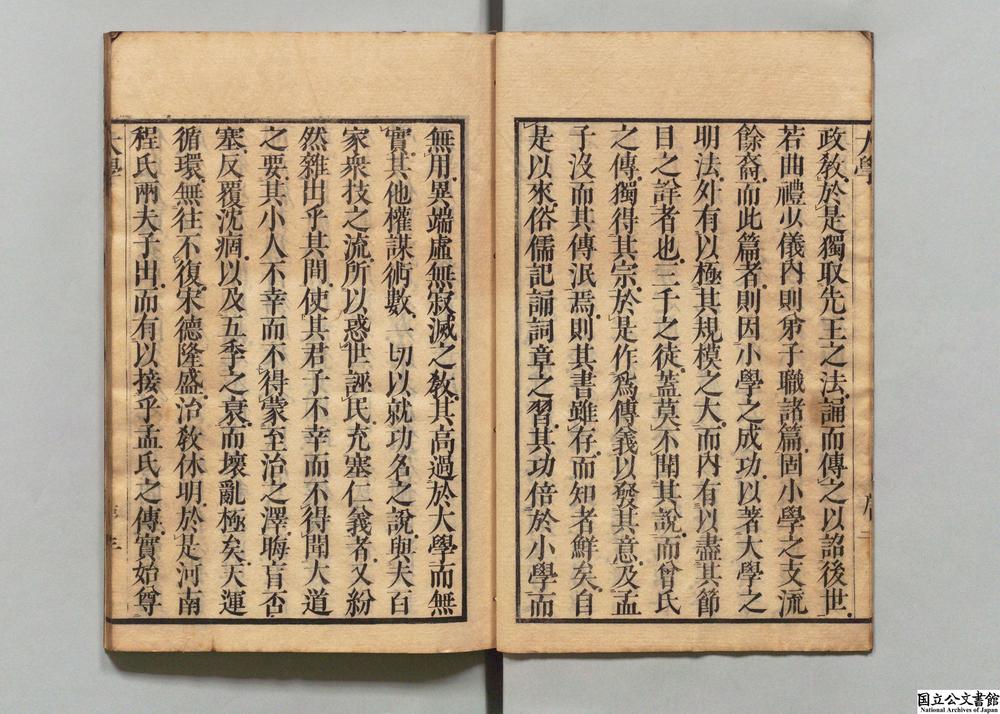 大學
政敎於是獨取先王之法誦而傳之以詔後世
若曲禮少儀內則弟子職諸篇固小學之支流
餘裔而此篇者則因小學之成功以著大學之
明法外有以極其規模之大而內有以盡其節
目之詳者也三千之徒蓋莫不聞其說而曾氏
之傳獨得其宗於是作爲傳義以發其意及孟
子沒而其傳泯焉則其書雖存而知者鮮矣自
是以來俗儒記誦詞章之習其功倍於小學而
無用異端虛無寂滅之敎其高過於大學而無
實其他權謀術數一切以就功名之說與夫百
家衆技之流所以惑世誣民充塞仁義者又紛
然雜出乎其間使其君子不幸而不得聞大道
之要其小人不幸而不得蒙至治之澤晦盲否
塞反覆沈痼以及五季之衰而壞亂極矣天運
循環無往不復宋德隆盛治敎休明於是河南
程氏兩夫子出而有以接乎孟氏之傳實始尊
大學
国立公文書館
National Archives of Japan